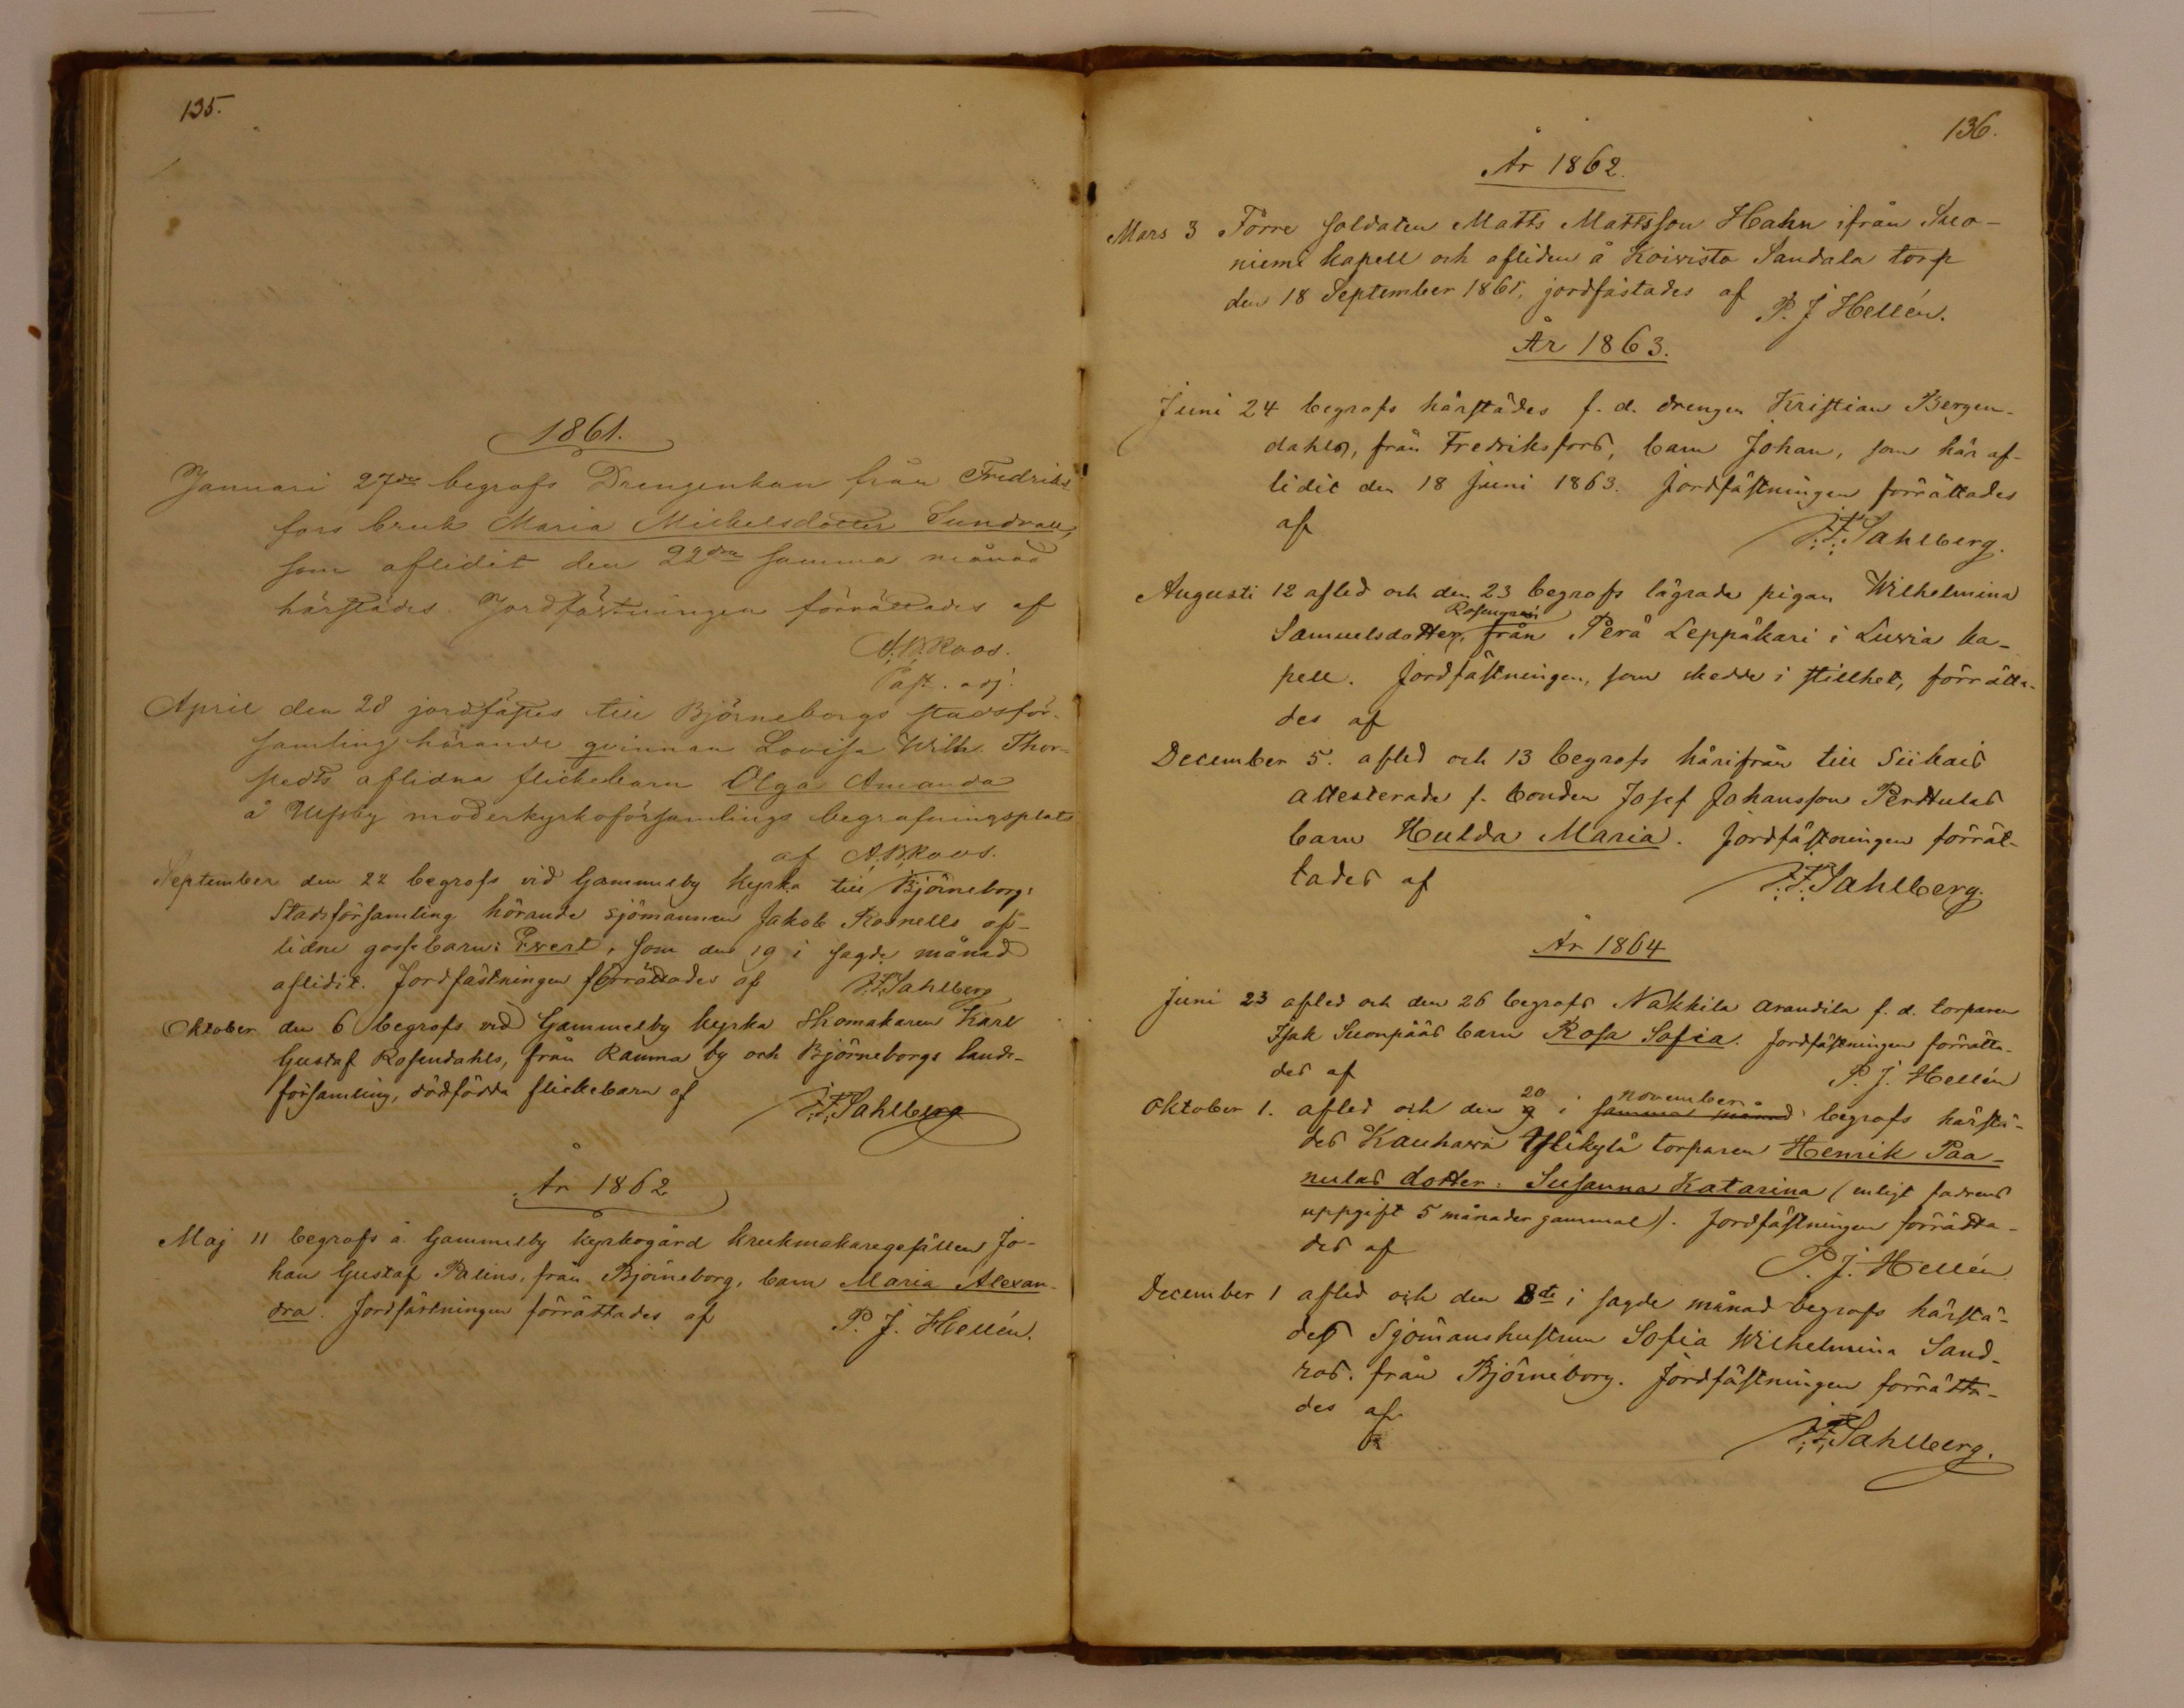 135.
1861.
Januari 27de begrofs Drengenkan från Fredriks
fors bruk Maria Michelsdotter Sundvall,
som aflidit den 22dra samma månad
härstädes. Jordfästningen förrättades af
A. W. Roos.
Past. adj.
April den 28 jordfästes till Björneborgs stadsför-
samling hörande qvinnan Lovisa Wilh. Thor-
stedts aflidna flickebarn Olga Amanda
å Ulfsby moderkyrkoförsamlings begrafningsplats
af A. W. Roos.
September den 22 begrofs vid Gammelby kyrka till Björneborgs
Stadsförsamling hörande sjömannen Jakob Rosnells af-
lidne gossebarn: Evert, som den 19 i sagde månad
aflidit. Jordfästningen förrättades af F. F. Sahlberg
Oktober den 6 begrofs vid Gammelby kyrka skomakaren Karl
Gustaf Rosendahls, från Rauma by och Björneborgs lands-
församling, dödfödda flickebarn af F. F. Sahlberg
År 1862
Maj 11 begrofs å Gammelby kyrkogård krukmakaregesällen Jo-
han Gustaf Palins, från Björneborg, barn Maria Alexan-
dra. Jordfästningen förrättades af P. J. Hellén.
136.
År 1862.
Mars 3 Förre soldaten Matts Mattsson Hahn ifrån Suo-
niemi kapell och afliden å Koivisto Sandala torp
den 18 September 1861, jordfästades af P. J Hellén.
År 1863.
Juni 24 begrofs härstädes f. d. drengen Kristian Bergen-
dahls, från Fredriksfors, barn Johan, som här af-
lidit den 18 Juni 1863. Jordfästningen förrättades
af F. F. Sahlberg.
Augusti 12 afled och den 23 begrofs lägrade pigan Wilhelmina
Rosengren
Samuelsdotter, från Perä Leppäkari i Luvia ka-
pell. Jordfästningen, som skedde i stillhet, förrätta-
des af
December 5. afled och 13 begrofs härifrån till Siikais
attesterade f. bonden Josef Johansson Perttulas
barn Hulda Maria. Jordfästningen förrät-
tades af F. F. Sahlberg.
År 1864
Juni 23 afled och den 26 begrofs Nakkila Arandila f. d. torparen
Isak Suonpääs barn Rosa Sofia. Jordfästningen förrätta-
des af P. J. Hellén
20 november
Oktober 1. afled och den 9 i samma månad begrofs härstä-
des Kauhava Ylikylä torparen Henrik Paa-
nulas dotter: Susanna Katarina (enligt fadrens
uppgift 5 månader gammal). Jordfästningen förrätta-
des af P. J. Hellén
December 1 afled och den 8de i sagde månad begrofs härstä-
des Sjömanshustrun Sofia Wilhelmina Sand-
ros. från Björneborg. Jordfästningen förrätta-
des af
F. F. Sahlberg.